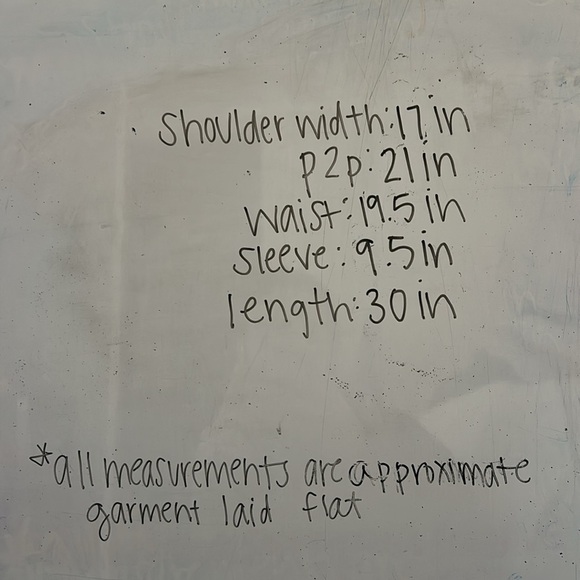 shoulder width:17 in
p2p:21in
waist:19.5 in
sleeve: 9.5in
length:30 in
*all measurements are approximate
garment laid flat